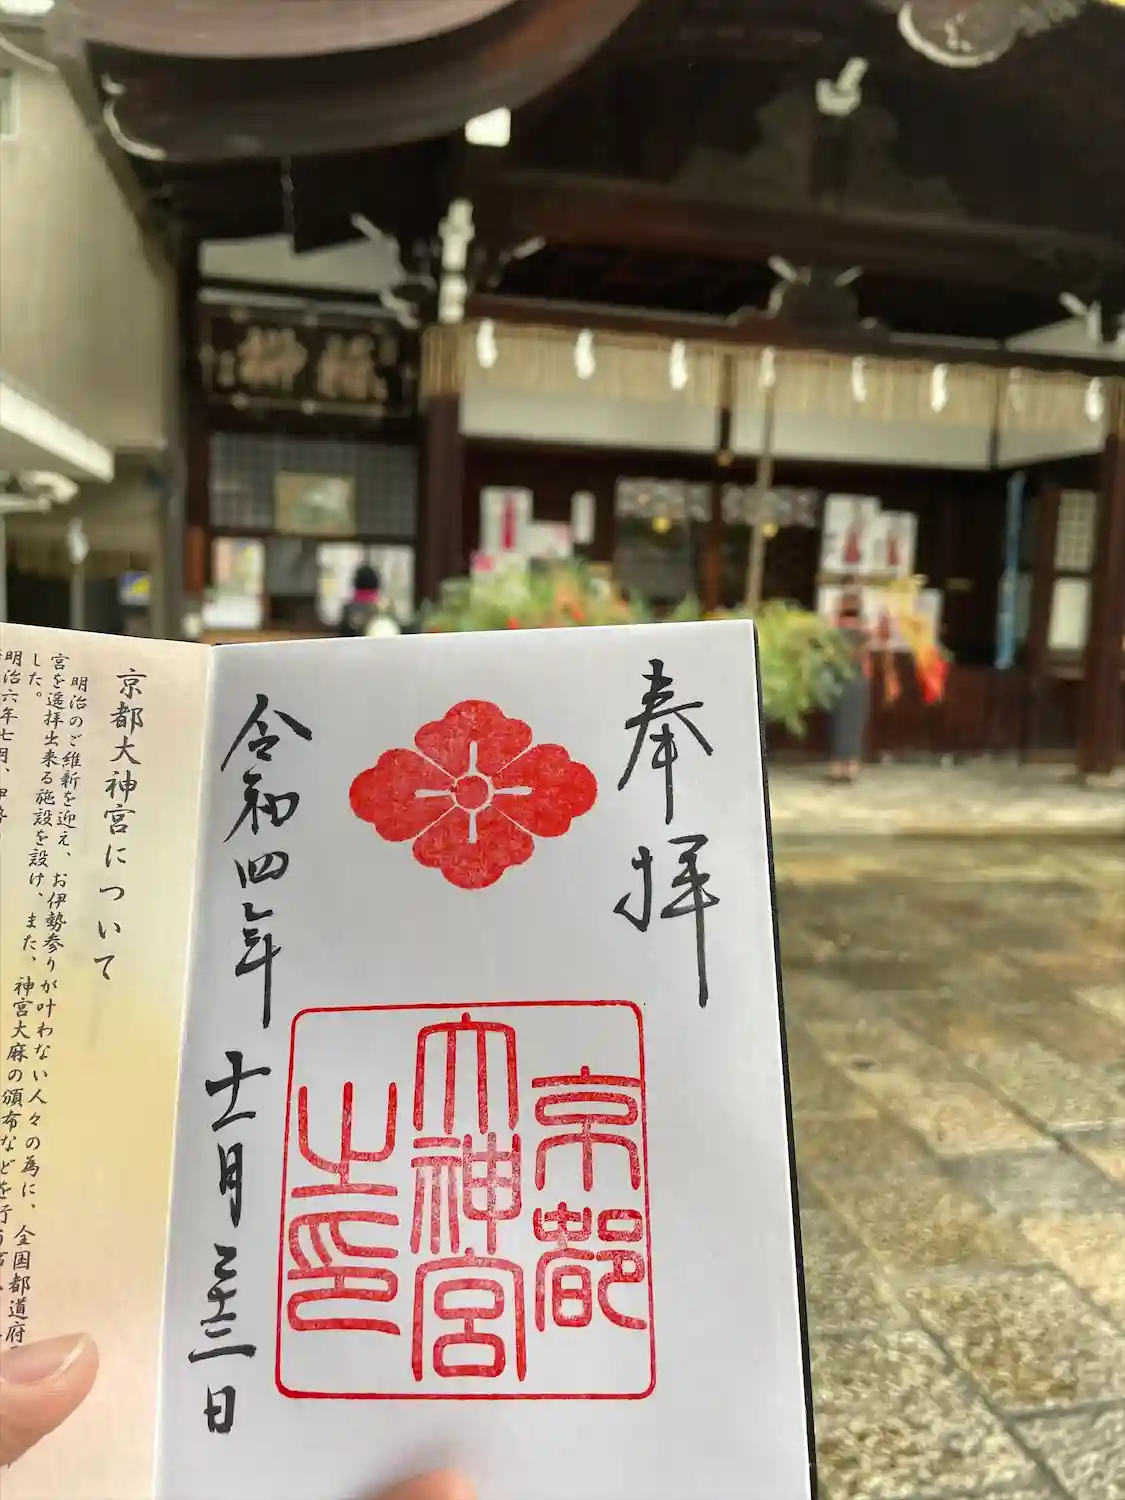 奉拝
京都
大神宮
之印
令和四年 十一月 二十三日
京都大神宮について
明治のご維新を迎え、お伊勢参りが叶わない人々の為に、全国都道府
宮を遥拝出来る施設を設け、また、神宮大麻の頒布などを行
した。
明治六年七月、伊勢